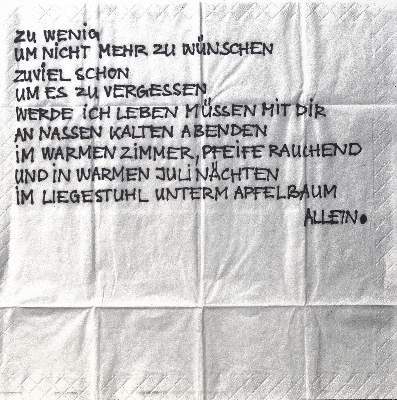 ZU WENIG
UM NICHT MEHR ZU WÜNSCHEN
ZUVIEL SCHON
UM ES ZU VERGESSEN
WERDE iCH LEBEN MÜSSEN MIT DIR
AN NASSEN KALTEN ABENDEN
iM WARMEN ZIMMER, PFEIFE RAUCHEND
UND IN WARMEN JULI NÄCHTEN
IM LIEGESTUHL UNTERM APFELBAUM
ALLEIN.